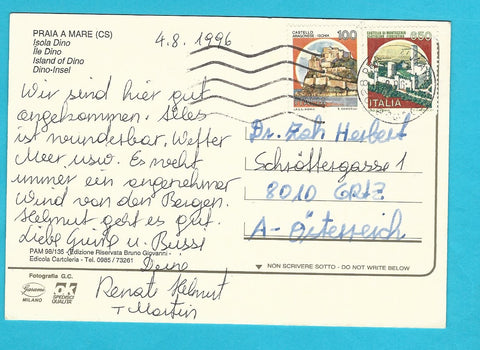 PRAIA A MARE (CS)
Isola Dino
Ile Dino
Island of Dino
Dino-Insel
4.8.1996
CASTELLO ARAGONESE ISCHIA
100
650
ITALIA
Wir sind hier gut
angekommen. Alles
ist wunderbar, Wetter
Meer, usw. Es weht
immer ein angenehmer
Wind von den Bergen.
Helmut geht es gut.
Liebe Grüße u. Bussi
Deine
Renate Helmut
+ Martin
Dr. Herbert
Schröttergasse 1
8010 GRAZ
A-Österreich
PAM 98/135 - Edizione Riservata Bruno Giovanni -
Edicola Cartoleria - Tel. 0985 / 73261
NON SCRIVERE SOTTO - DO NOT WRITE BELOW
Fotografia G.C.
MILANO
OK